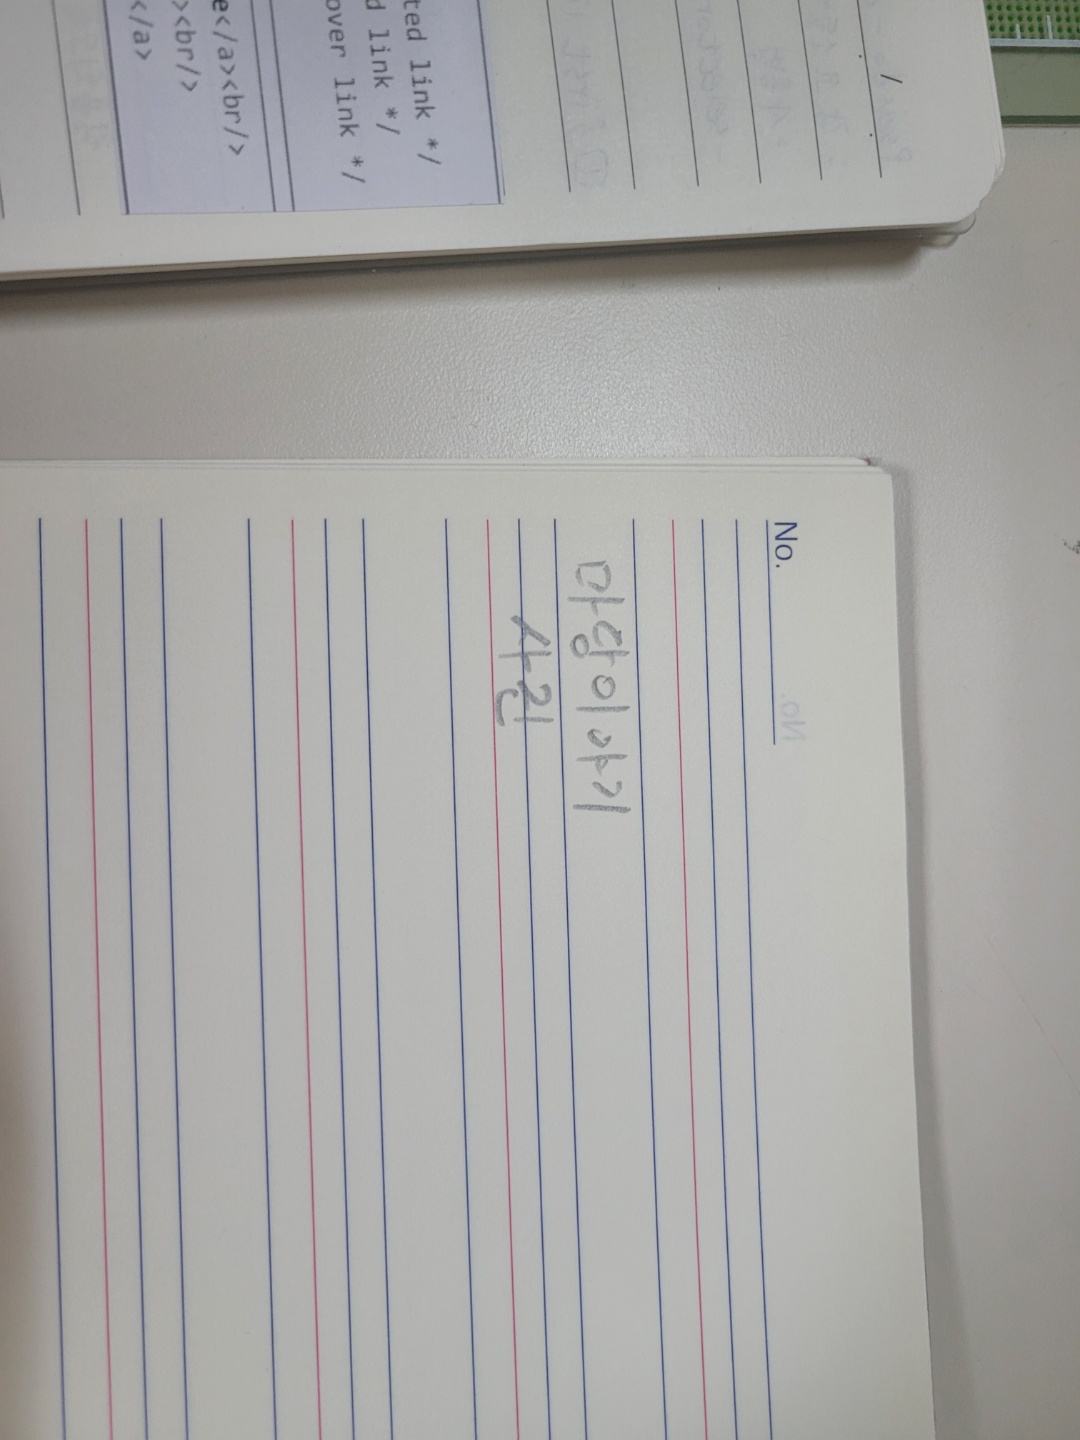 /
ted link */
d link */
over link */
e</a><br/>
><br/>
</a>
No.
마당이야기
사진